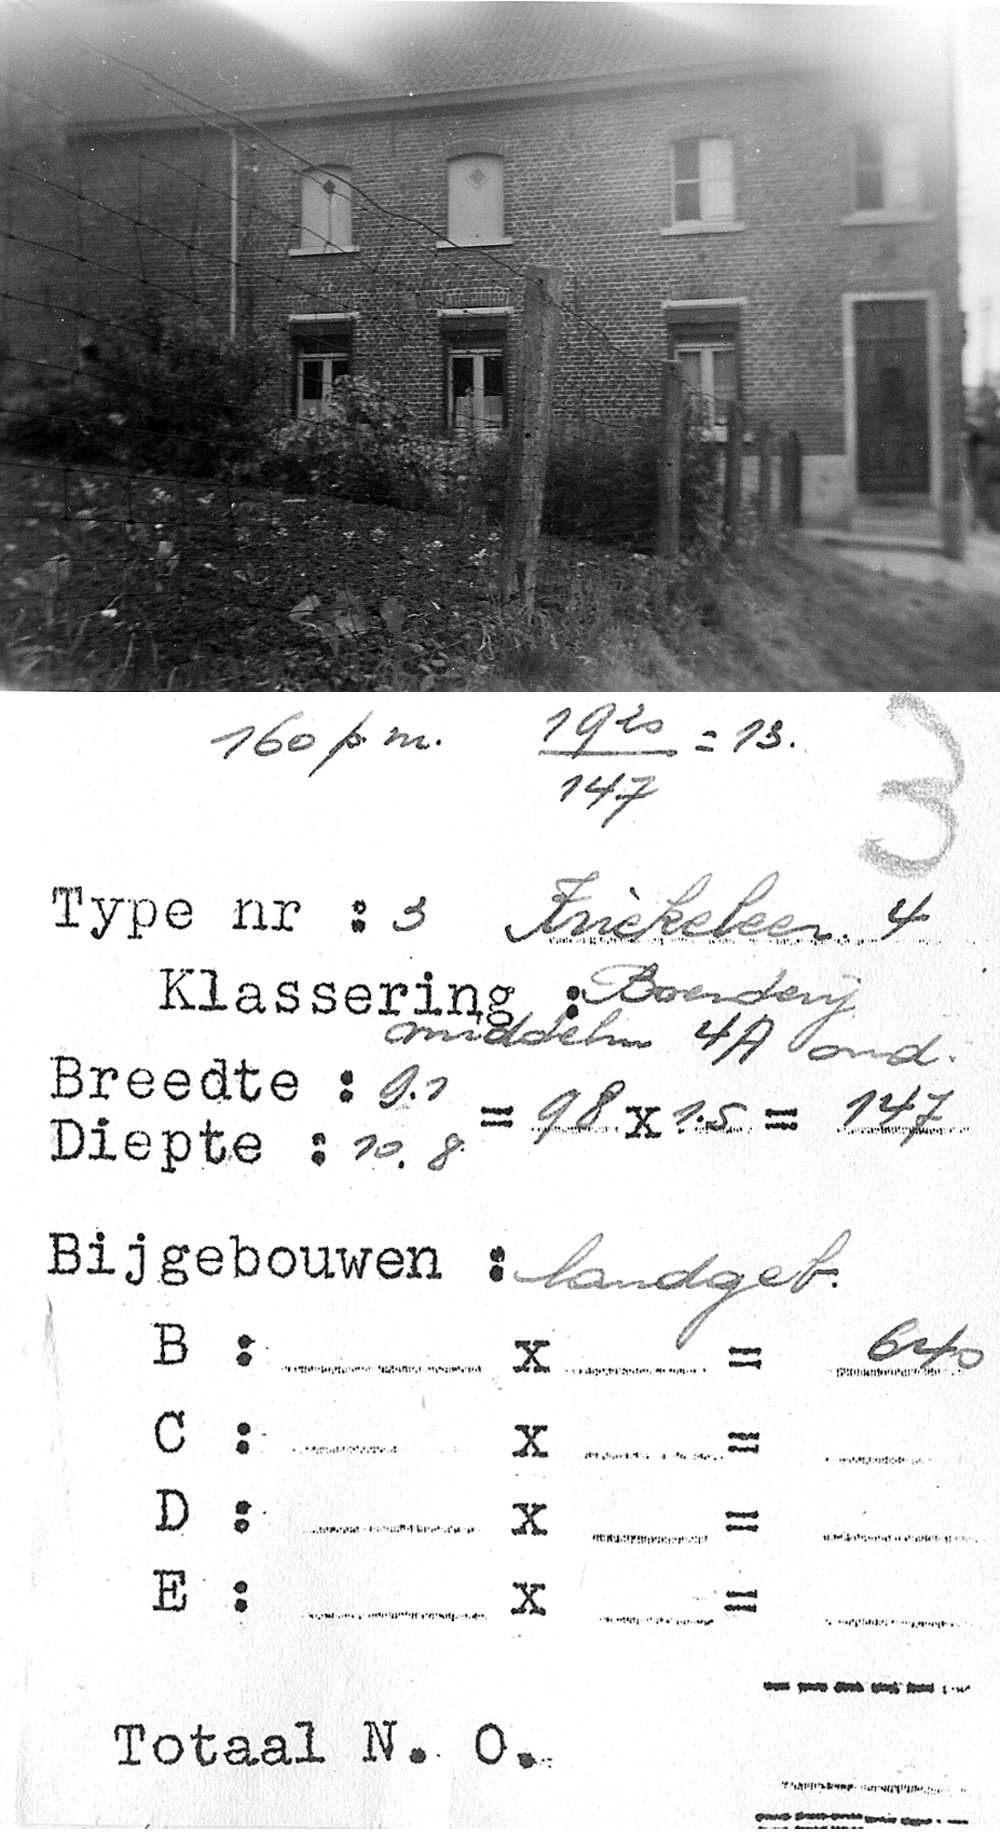 160 p.m. 1920 / 147 = 13.
3
Type nr : 3 Kriekeleer. 4
Klassering : Boerderij
middelm 4A ond.
Breedte : 9.1
= 98 x 1.5 = 147
Diepte : 10.8
Bijgebouwen : landgeb.
B : x = 640
C : x =
D : x =
E : x =
Totaal N. O.